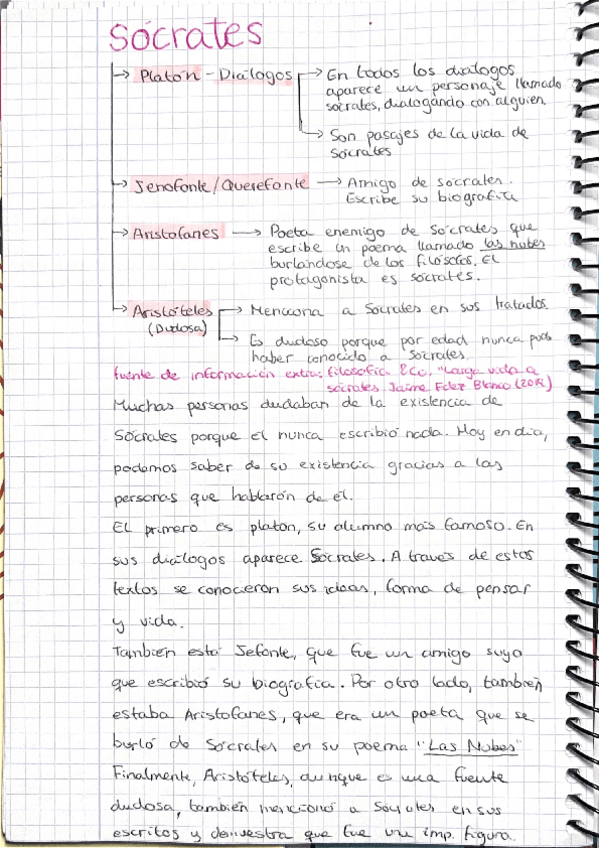 Sócrates
→ Platón - Diálogos → En todos los dialogos
aparece un personaje llamado
sócrates, dialogando con alguien.
→ Son pasajes de la vida de
sócrates
→ Jenofonte/Querefonte → Amigo de sócrates.
Escribe su biografía
→ Aristofanes → Poeta enemigo de sócrates que
escribe un poema llamado las nubes
burlandose de los filósofos. El
protagonista es sócrates.
→ Aristóteles → Menciona a Sócrates en sus tratados
(Dudosa) → Es dudoso porque por edad nunca pudo
haber conocido a Sócrates.
fuente de información extra: filosofía &Co. "Larga vida a
sócrates. Jaime Fdez Blanco (2014)
Muchas personas dudaban de la existencia de
Sócrates porque él nunca escribió nada. Hoy en día,
podemos saber de su existencia gracias a las
personas que hablarón de él.
El primero es platon, su alumno más famoso. En
sus diálogos aparece Sócrates. A traves de estos
textos se conocieron sus ideas, forma de pensar
y vida.
También está Jefonte, que fue un amigo suyo
que escribió su biografía. Por otro lado, también
estaba Aristofanes, que era un poeta que se
burló de Sócrates en su poema "Las Nubes"
Finalmente, Aristóteles, aunque es una fuente
dudosa, también mencionó a Sócrates en sus
escritos y demuestra que fue una imp. figura.